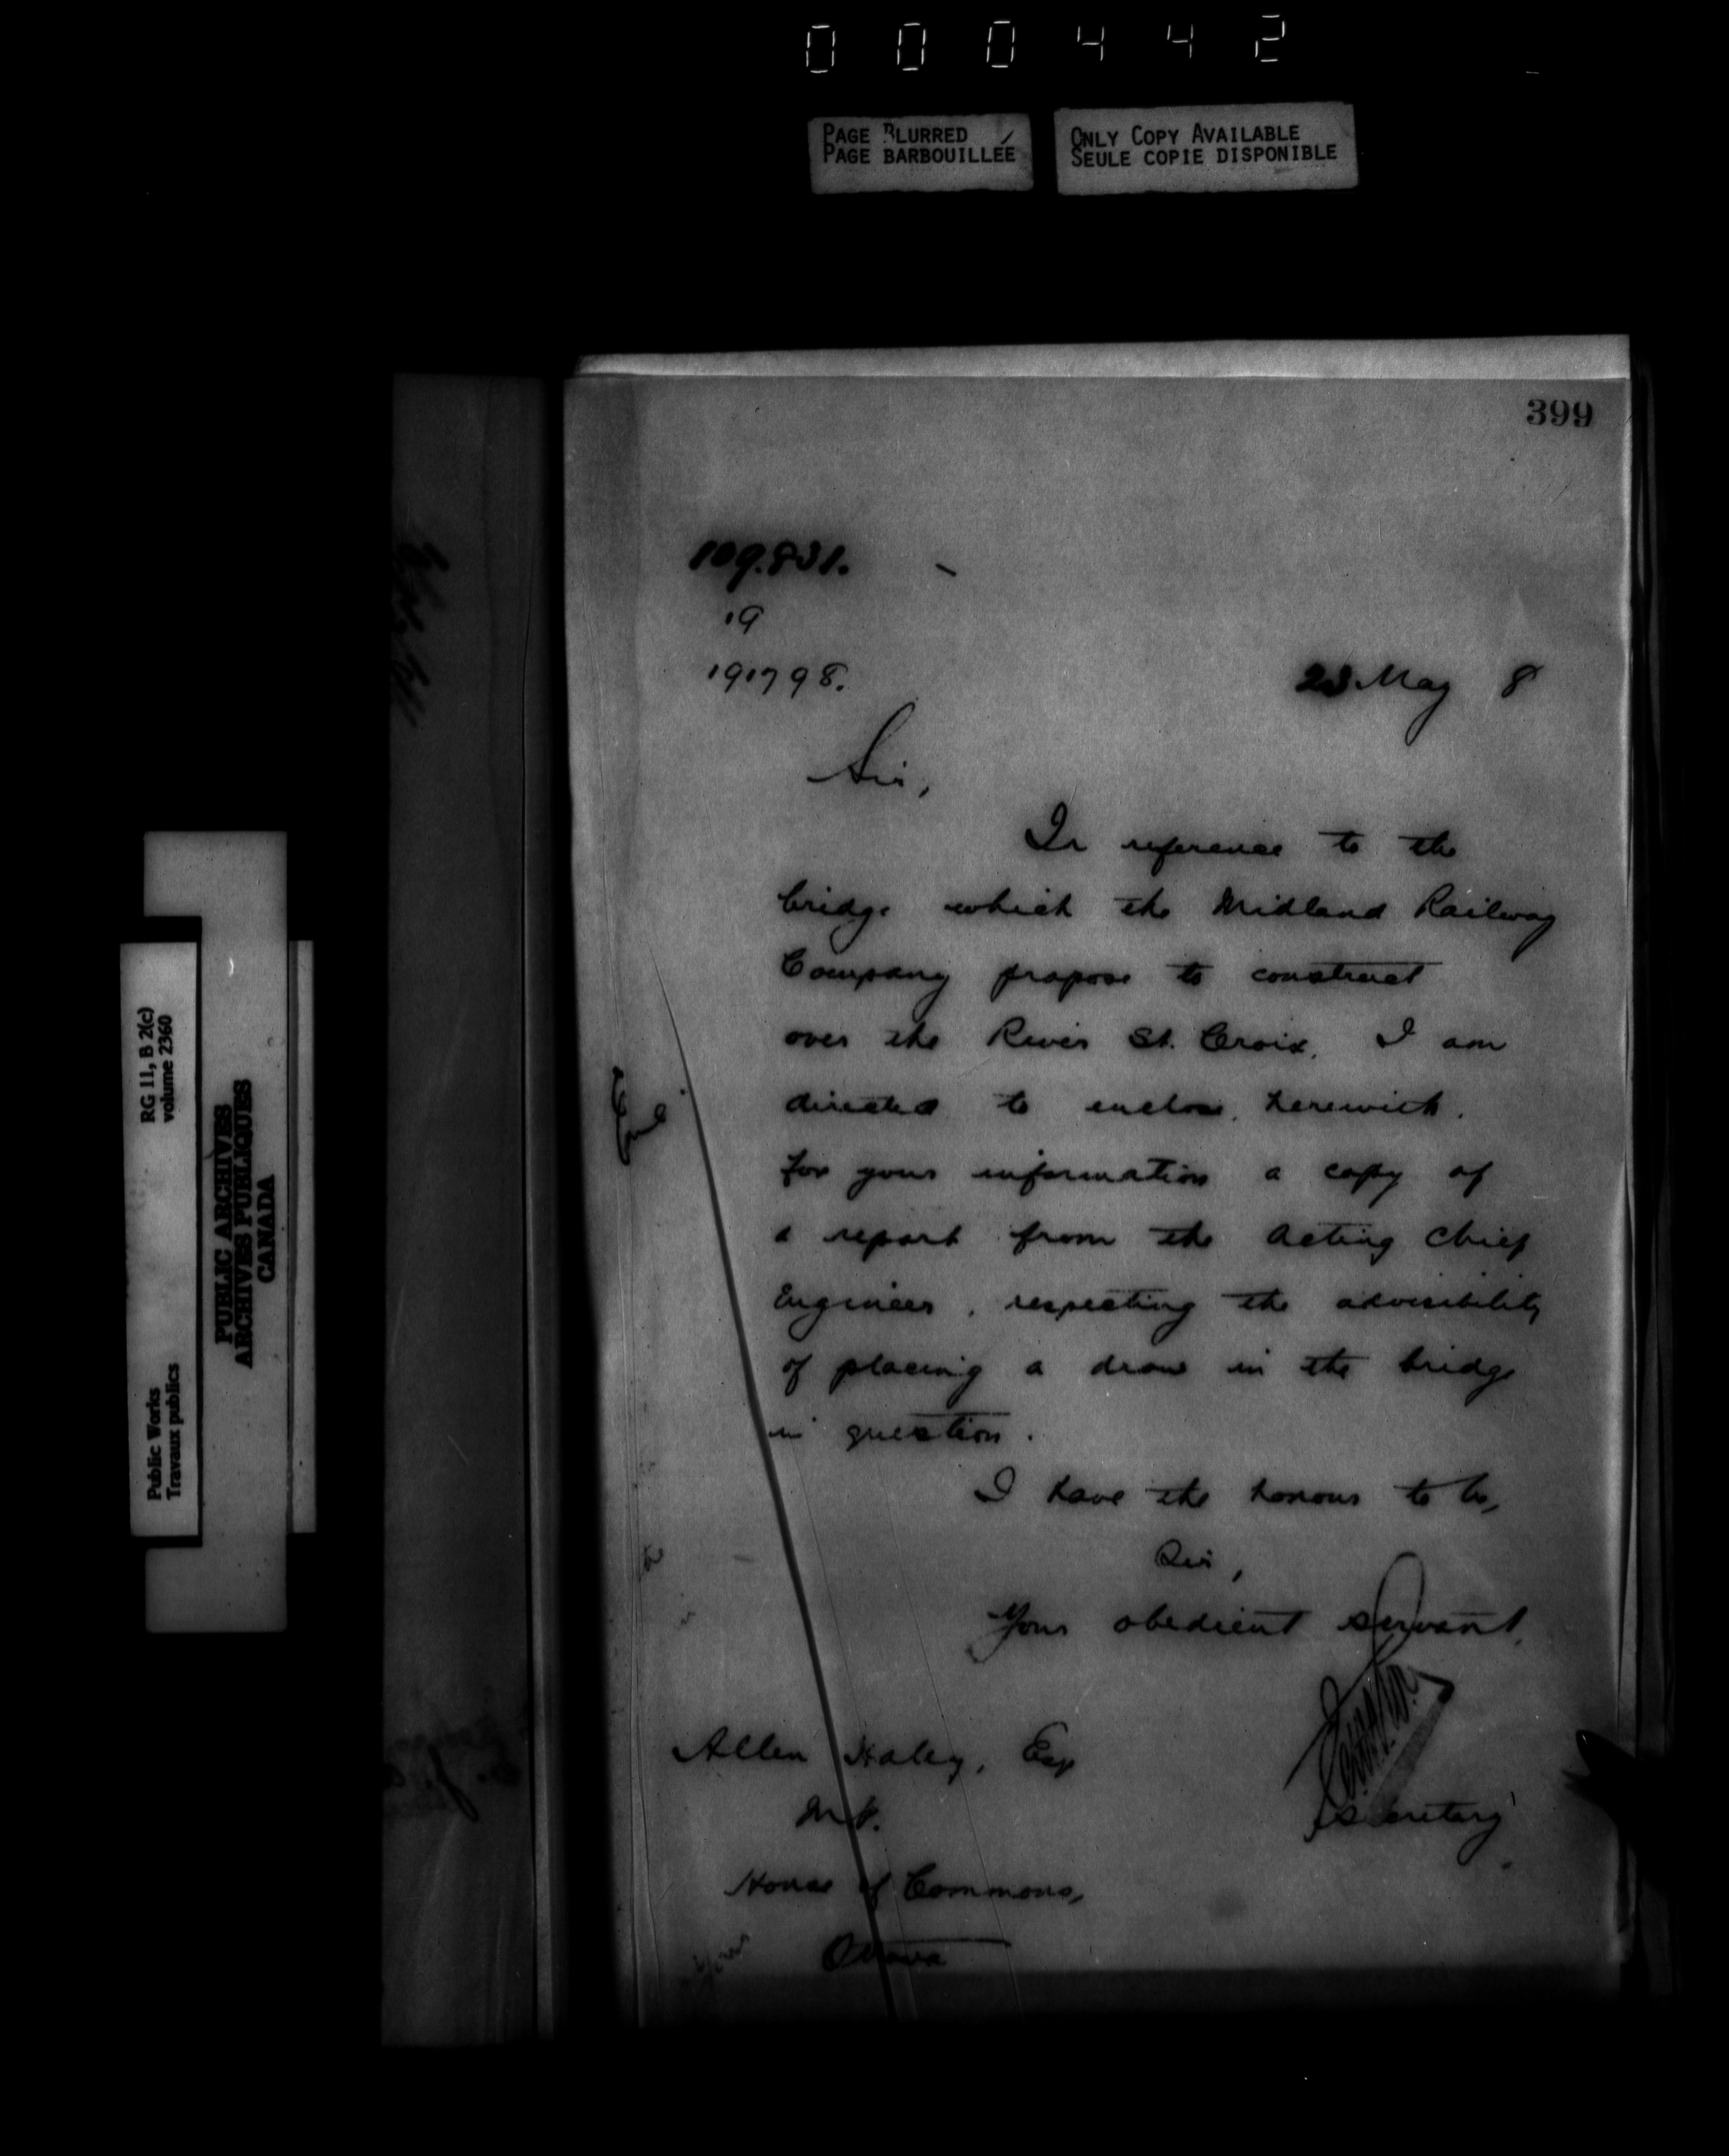 000442
PAGE BLURRED
PAGE BARBOUILLÉE
ONLY COPY AVAILABLE
SEULE COPIE DISPONIBLE
399
109.831.
19
191798.
23 May 8
Sir,
In reference to the
bridge which the Midland Railway
Company propose to construct
over the River St. Croix, I am
directed to enclose, herewith,
for your information a copy of
a report from the Acting Chief
Engineer, respecting the advisibility
of placing a draw in the bridge
in question.
I have the honour to be,
Sir,
Your obedient servant,
Secretary
Allen Haley, Esq
M.P.
House of Commons,
Ottawa
RG 11, B 2(c)
volume 2360
Public Works
Travaux publics
PUBLIC ARCHIVES
ARCHIVES PUBLIQUES
CANADA